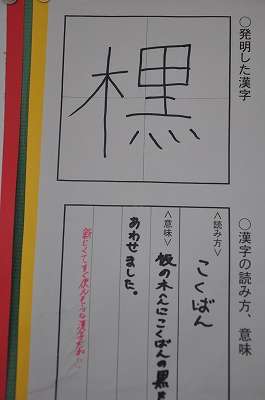 ○発明した漢字
木黒
○漢字の読み方、意味
<読み方>
こくばん
<意味>
板の木へんにこくばんの黒を
あわせました。